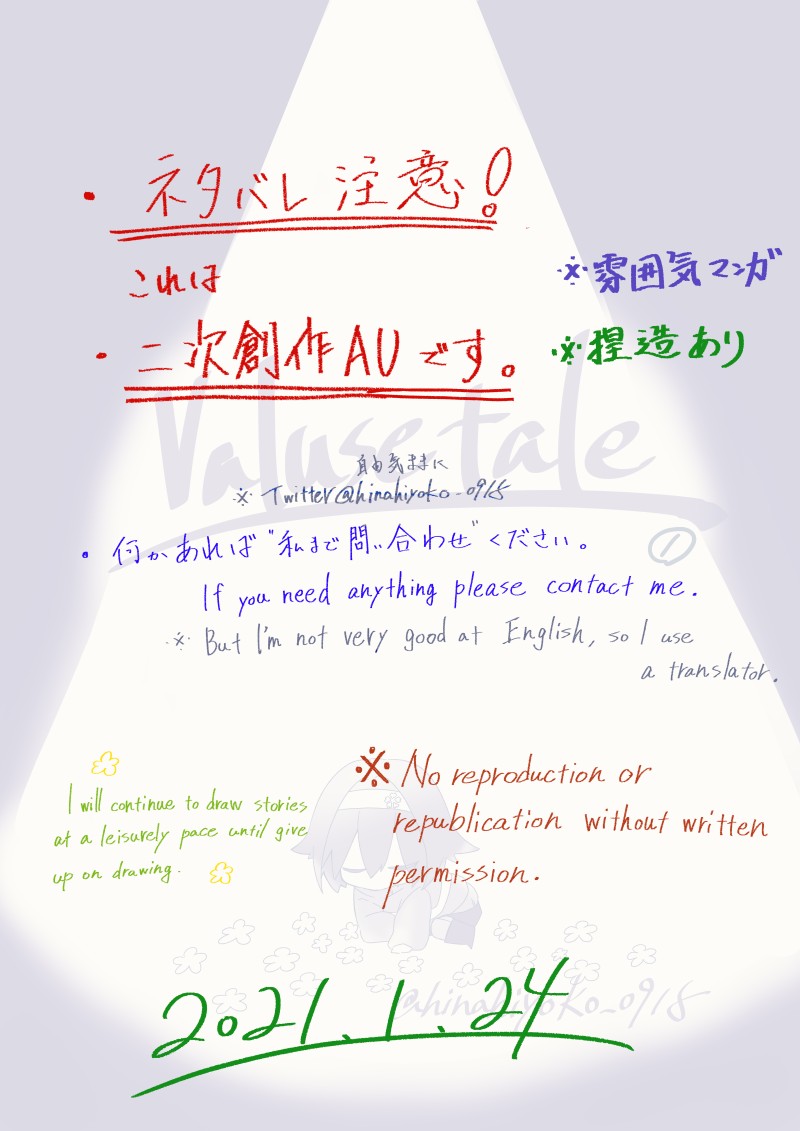 ・ネタバレ注意!
これは
・二次創作AUです。
※雰囲気マンガ
※捏造あり
Valusetale
自由気ままに
※Twitter@hinahiyoko_0915
・何かあれば"私まで問い合わせ"ください。
①
If you need anything please contact me.
※But I'm not very good at English, so I use
a translator.
I will continue to draw stories
at a leisurely pace until give
up on drawing.
※No reproduction or
republication without written
permission.
@hinahiyoko_0915
2021.1.24